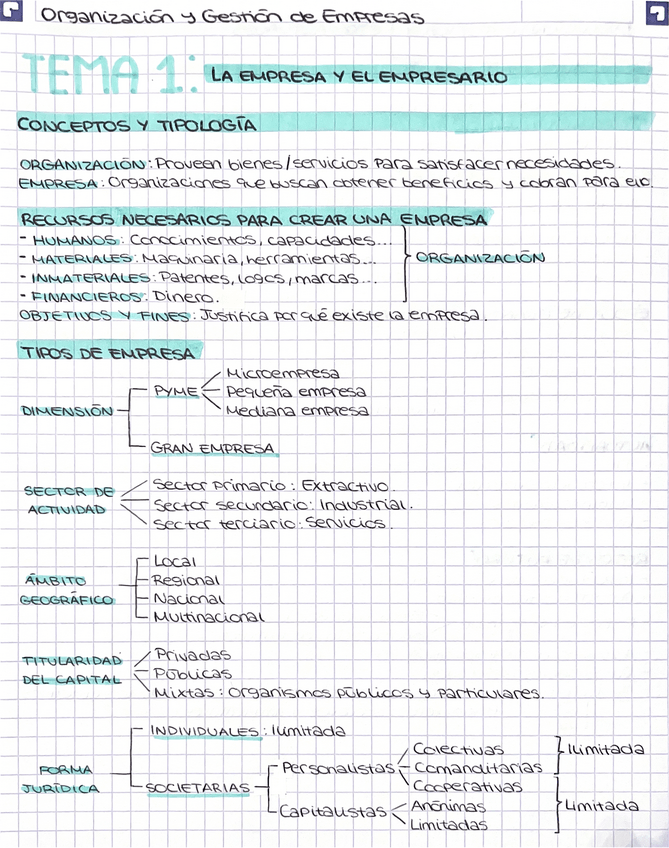 Organización y Gestión de Empresas
TEMA 1: LA EMPRESA Y EL EMPRESARIO
CONCEPTOS Y TIPOLOGÍA
ORGANIZACIÓN: Proveen bienes/servicios para satisfacer necesidades.
EMPRESA: Organizaciones que buscan obtener beneficios y cobran para ello.
RECURSOS NECESARIOS PARA CREAR UNA EMPRESA
- HUMANOS: Conocimientos, capacidades...
- MATERIALES: Maquinaria, herramientas... ORGANIZACIÓN
- INMATERIALES: Patentes, logos, marcas...
- FINANCIEROS: Dinero.
OBJETIVOS Y FINES: Justifica por qué existe la empresa.
TIPOS DE EMPRESA
DIMENSIÓN
PYME
Microempresa
Pequeña empresa
Mediana empresa
GRAN EMPRESA
SECTOR DE
ACTIVIDAD
Sector primario: Extractivo.
Sector secundario: Industrial.
Sector terciario: Servicios.
ÁMBITO
GEOGRÁFICO
Local
Regional
Nacional
Multinacional
TITULARIDAD
DEL CAPITAL
Privadas
Públicas
Mixtas: Organismos públicos y particulares.
FORMA
JURÍDICA
INDIVIDUALES: Ilimitada
SOCIETARIAS
Personalistas
Colectivas
Comanditarias
Ilimitada
Cooperativas
Capitalistas
Anónimas
Limitadas
Limitada